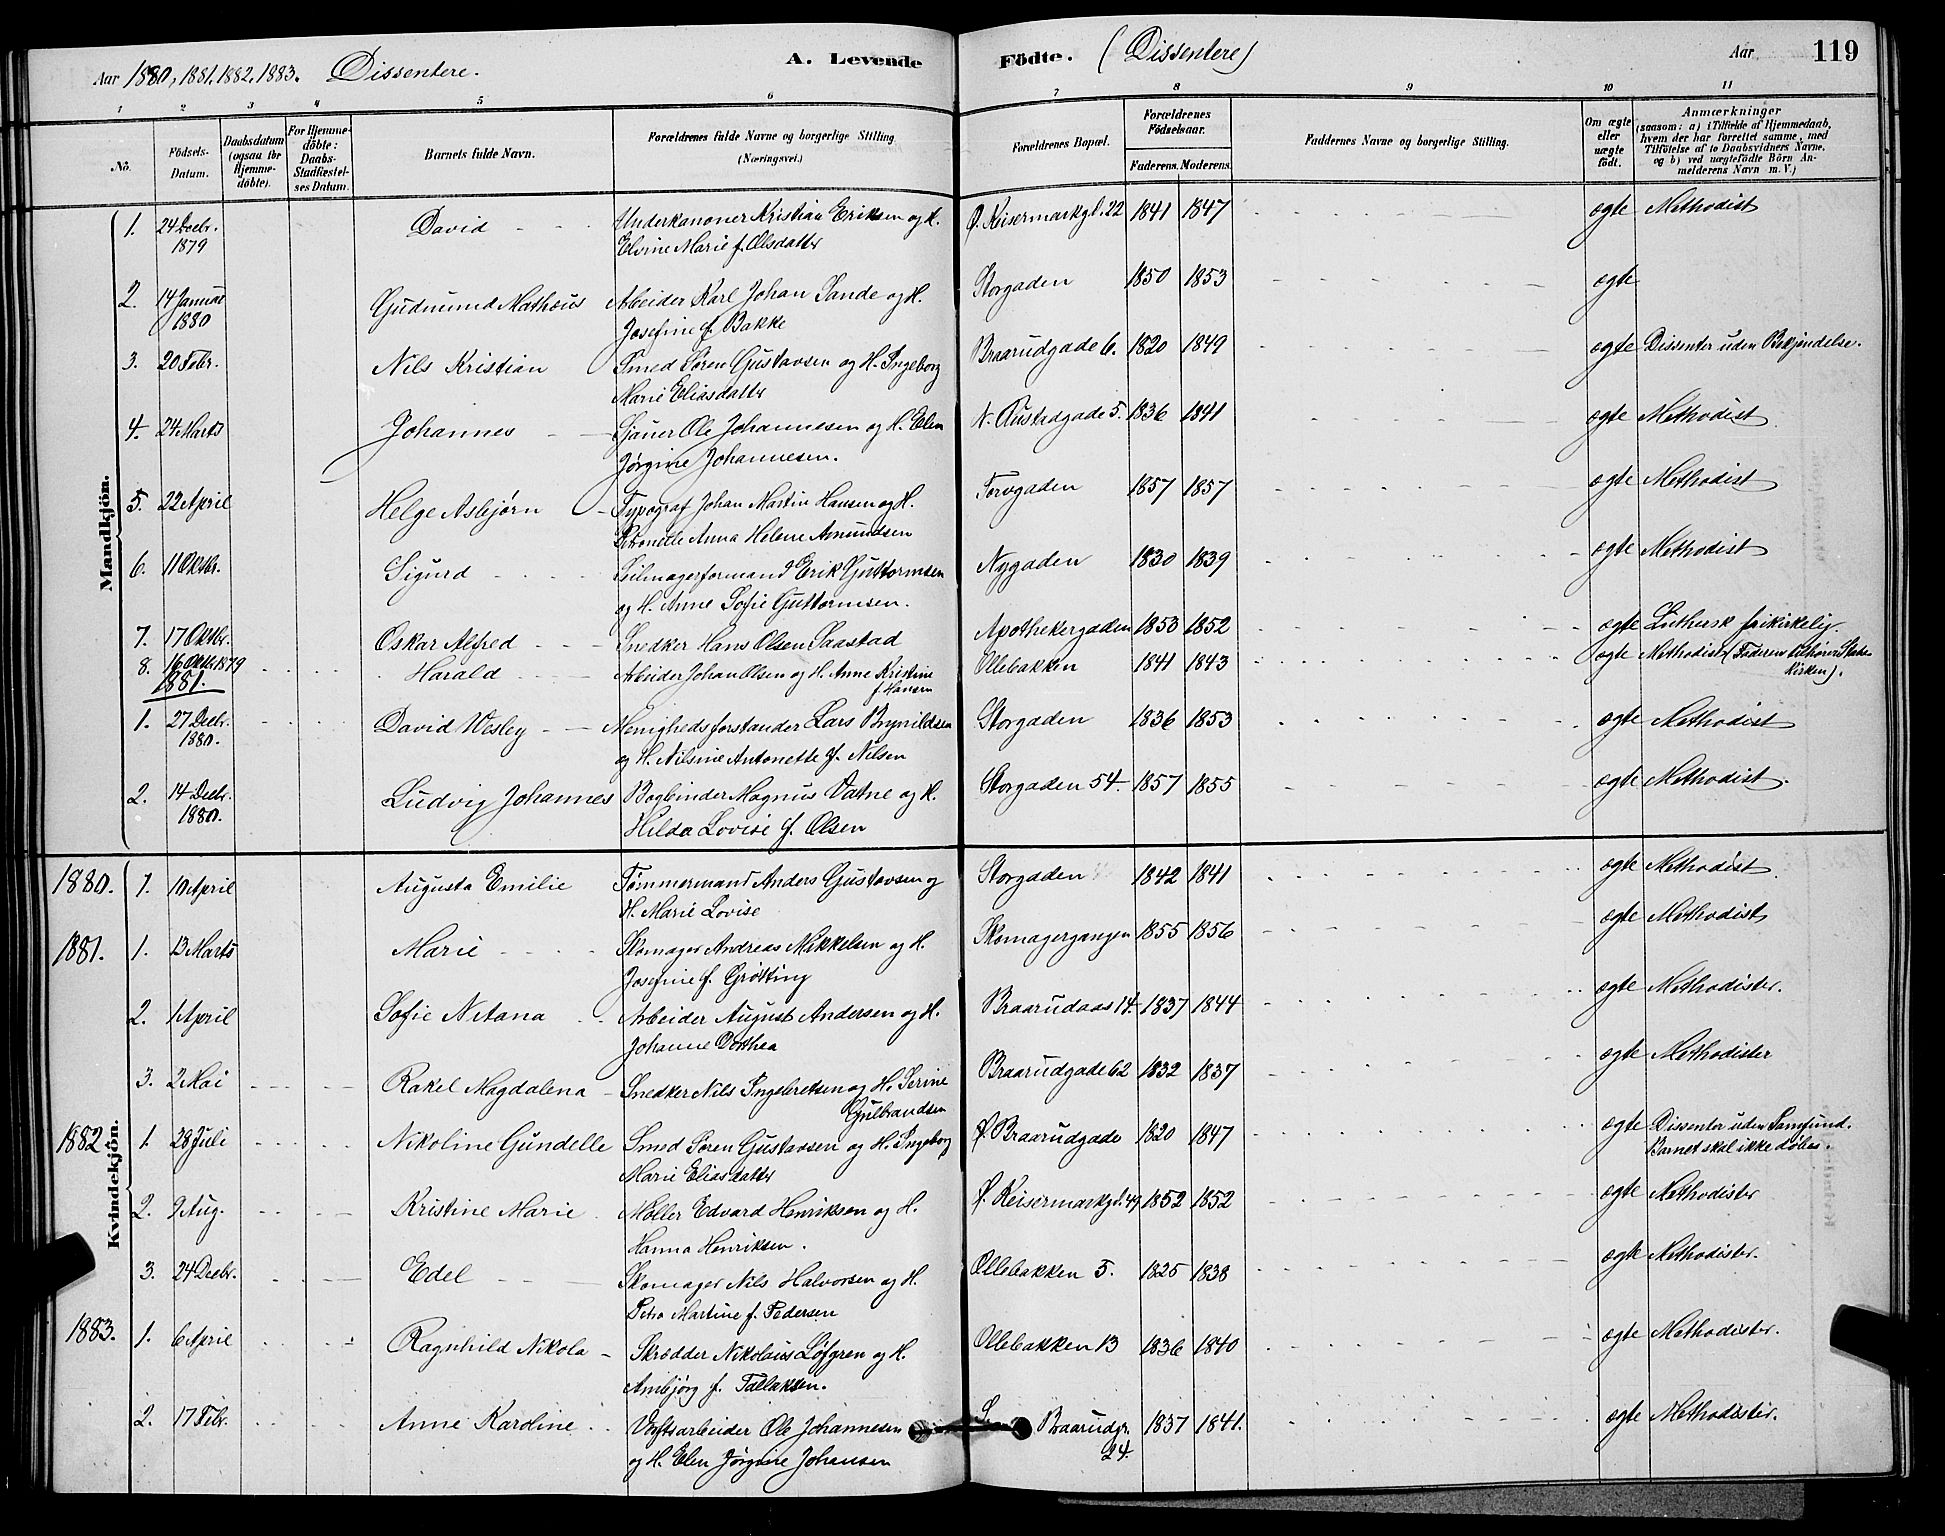 Aar 1880, 1881, 1882, 1883. Dissentere. A. Levende Födte. (Dissentere) Aar 119
1 2 3 4 5 6 7 8 9 10 11
No. Födsels-Datum. Daabsdatum (ogsaa for Hjemmedöbte). For Hjemmedöbte: Daabs-Stadfæstelses Datum. Barnets fulde Navn. Forældrenes fulde Navne og borgerlige Stilling (Næringsvei.) Forældrenes Bopæl. Forældrenes Födselsaar. Faderens. Moderens. Faddernes Navne og borgerlige Stilling. Om ægte eller uægte födt. Anmærkninger (saasom: a) i Tilfælde af Hjemmedaab, hvem der har forrettet samme, med Tilföielse af to Daabsvidners Navne, og b) ved uægtefödte Börn Anmelderens Navn m. V.)
Mandkjön.
1. 24 Decbr. David Underkanoner Kristian Eriksen og H. Ø. Keisermarkgd. 22 1841 1847 ægte Methodist
1879 Elvine Marie f. Olsdatter
2. 14 Januar Gudmund Mathæus Arbeider Karl Johan Sande og H. Storgaden 1850 1853 ægte
1880 Josefine f. Bakke
3. 20 Febr. Nils Kristian Smed Søren Gustavsen og H. Ingeborg Braarudgade 6. 1820 1849 ægte Dissenter uden Bekjendelse.
Marie Eliasdatter
4. 24 Marts Johannes Sjauer Ole Johannesen og H. Elen N. Rustadgade 5. 1836 1841 ægte Methodist
Jørgine Johannesen.
5. 22 April Helge Asbjørn Typograf Johan Martin Hansen og H. Torvgaden 1857 1857 ægte Methodist
Petronelle Anna Helene Amundsen
6. 11 Oktbr. Sigurd Seilmagerformand Erik Guttormsen Nygaden 1830 1839 ægte Methodist
og H. Anne Sofie Guttormsen.
7. 17 Oktbr. Oskar Alfred Snedker Hans Olsen Saastad Apothekergaden 1853 1852 ægte Luthersk frikirkelig.
8. 16 Oktbr 1879 Harald Arbeider Johan Olsen og H. Anne Kristine Ollebakken 1841 1843 ægte Methodist (Faderen tilhører Statskirken).
1881. f. Hansen
1. 27 Decbr. David Wesley Menighedsforstander Lars Brynildsen Storgaden 1836 1853 ægte Methodist
1880. og H. Nilsine Antonette f. Nilsen
2. 14 Decbr. Ludvig Johannes Bogbinder Magnus Vatne og H. Storgaden 54. 1857 1855 ægte Methodist.
1880. Hilda Lovise f. Olsen
Kvindekjön.
1880. 1. 10 April Augusta Emilie Tømmermand Anders Gustavsen og Storgaden 1842 1841 ægte Methodist
H. Marie Lovise
1881. 1. 13 Marts Marie Skomager Andreas Mikkelsen og H. Skomagergangen 1855 1856 ægte Methodist
Josefine f. Grøtting
2. 1 April Sofie Netana Arbeider August Andersen og H. Braarudaas 14. 1837 1844 ægte Methodister.
Johanne Dorthea
3. 2 Mai Rakel Magdalena Snedker Nils Ingebretsen og H. Serine Braarudgade 62 1832 1837 ægte Methodister
Gulbrandsen
1882 1. 28 Juli Nikoline Gundelle Smed Søren Gustavsen og H. Ingeborg Ø. Braarudgade 1820 1847 ægte Dissenter uden Samfund.
Marie Eliasdatter Barnet skal ikke døbes.
2. 9 Aug. Kristine Marie Møller Edvard Henriksen og H. Ø. Keisermarkgd. 49 1852 1852 ægte Methodister
Hanna Henriksen.
3. 24 Decbr. Edel Skomager Nils Halvorsen og H. Ollebakken 5. 1825 1838 ægte Methodister.
Petra Martine f. Pedersen
1883. 1. 6 April Ragnhild Nikola Skrædder Nikolaus Løfgren og H. Ollebakken 13 1836 1840 ægte Methodister.
Ambjørg f. Tallaksen.
2. 17 Febr. Anne Karoline Verftsarbeider Ole Johannesen S. Braarudgr. 24. 1837 1841. ægte Methodister.
og H. Elen Jørgine Johansen